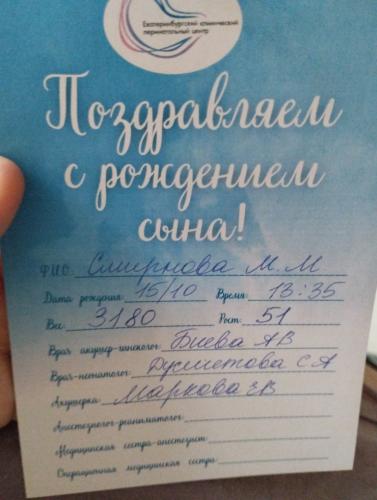 Екатеринбургский клинический
перинатальный центр
Поздравляем
с рождением
сына!
ФИО: Смирнова М.М
Дата рождения: 15/10 Время: 13:35
Вес: 3180 Рост: 51
Врач акушер-гинеколог: Биева АВ
Врач-неонатолог: Дусметова С А
Акушерка: Маркова ЗВ
Анестезиолог-реаниматолог:
Медицинская сестра-анестезист:
Операционная медицинская сестра: